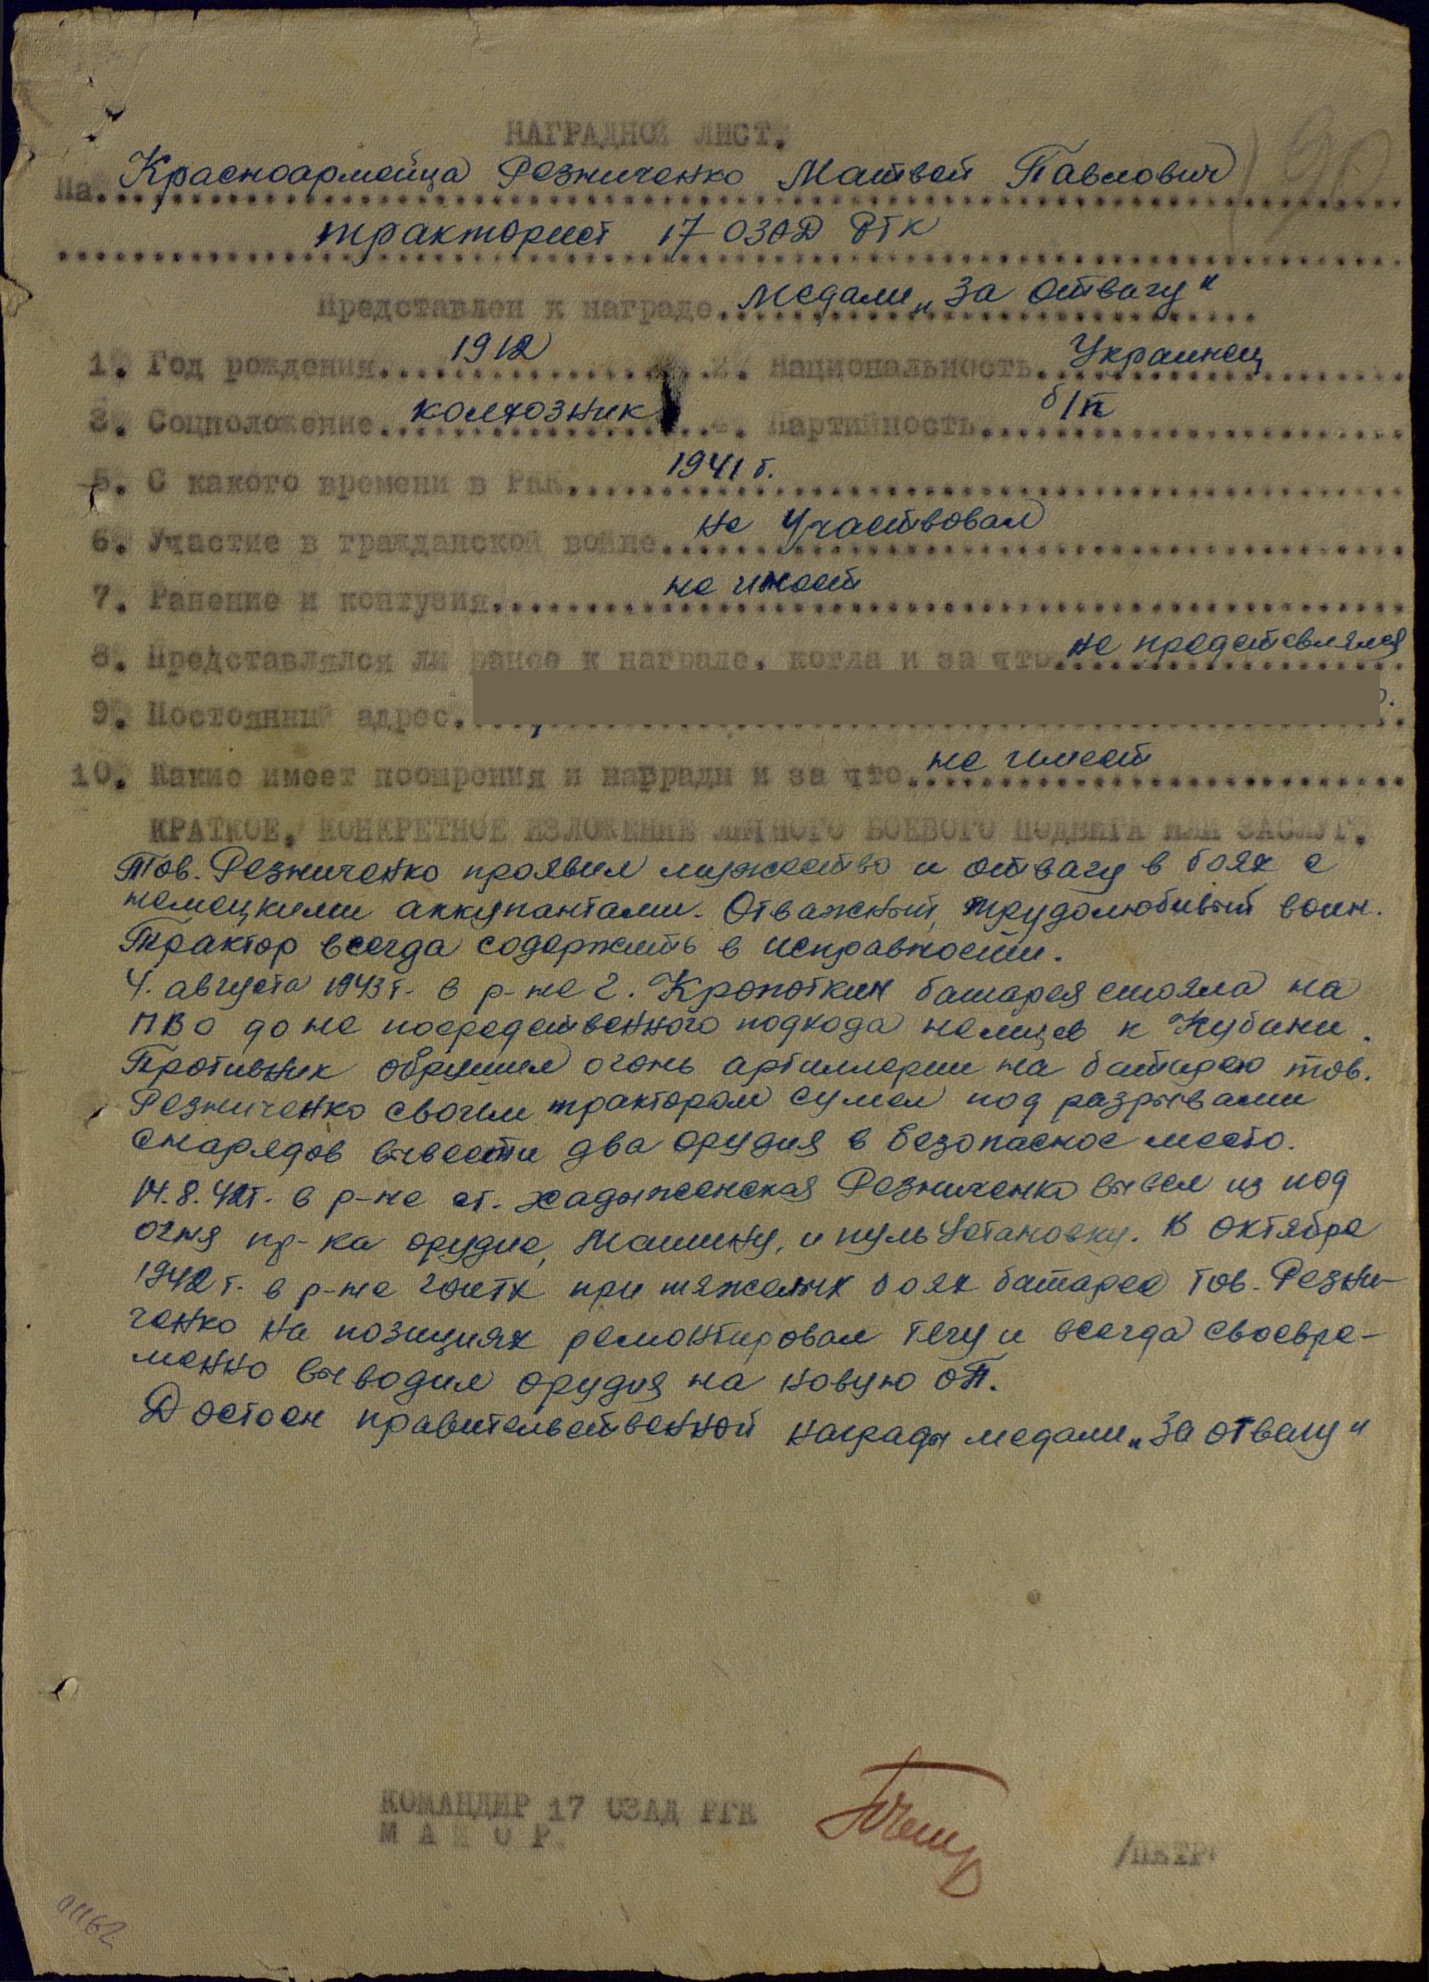 НАГРАДНОЙ ЛИСТ.
На Красноармейца Резниченко Матвей Павлович
тракторист 17 ОЗАД РГК
Представлен к награде медали „За отвагу"
1. Год рождения 1912 2. Национальность Украинец
3. Соцположение колхозник 4. Партийность б/п
5. С какого времени в РКК 1941 г.
6. Участие в гражданской войне не участвовал
7. Ранение и контузия не имеет
8. Представлялся ли ранее к награде, когда и за что не представлялся
9. Постоянный адрес.
10. Какие имеет поощрения и награды и за что не имеет
КРАТКОЕ, КОНКРЕТНОЕ ИЗЛОЖЕНИЕ ЛИЧНОГО БОЕВОГО ПОДВИГА ИЛИ ЗАСЛУГ.
Тов. Резниченко проявил мужество и отвагу в боях с
немецкими аккупантами. Отважный, трудолюбивый воин.
Трактор всегда содержить в исправности.
4. августа 1943 г. в р-не г. Кропоткин батарея стояла на
ПВО до не посредственного подхода немцев к Кубани.
Противник обрушил огонь артиллерии на батарею тов.
Резниченко своим трактором сумел под разрывами
снарядов вывести два орудия в безопасное место.
14.8.42г. в р-не ст. Хадыженская Резниченко вывел из под
огня пр-ка орудие, машину, и пуль установку. В октябре
1942 г. в р-не гойтх при тяжелых боях батареё тов. Резни-
ченко на позициях ремонтировал течи и всегда своевре-
менно выводил орудия на новую ОП.
Достоен правительственной награды медали „За отвагу"
КОМАНДИР 17 ОЗАД РГК
МАЙОР.
/ПЕТР
01162